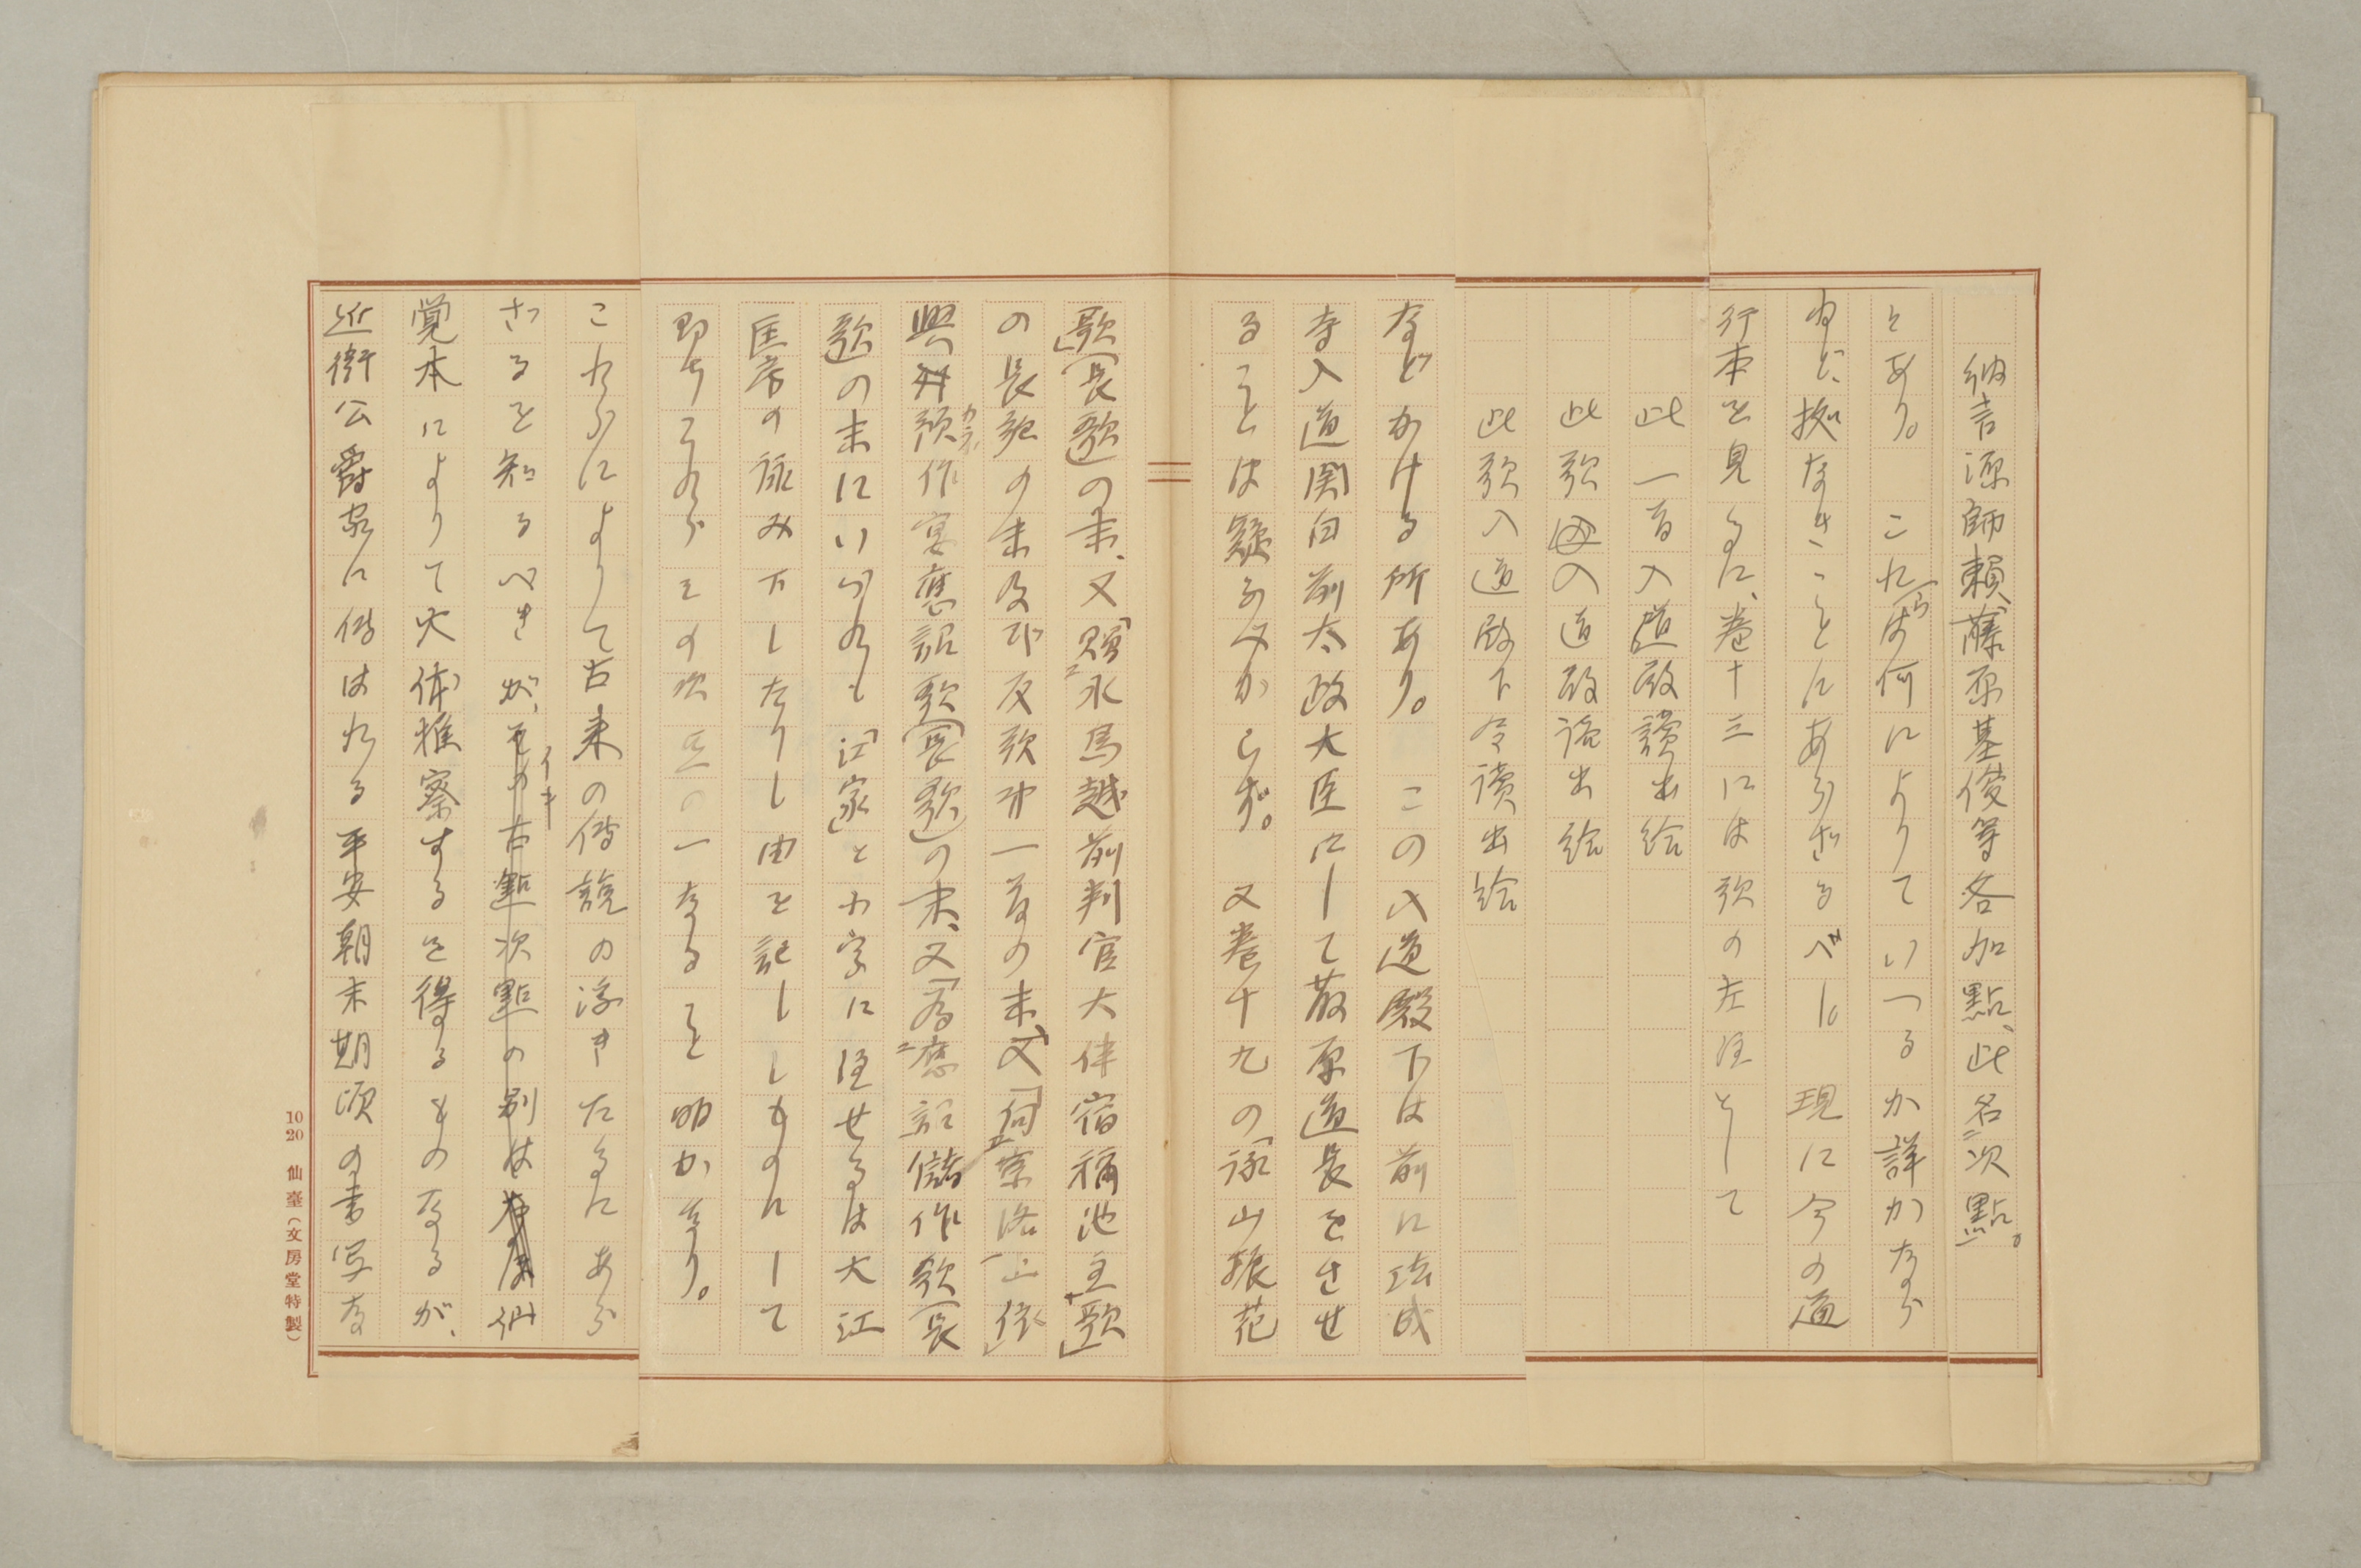 納言源師頼、藤原基俊等各加點、此名二次點一。
とあり。これらは何によりていへるか詳かなら
ねど、拠なきことにあらざるべし。現に今の通
行本を見るに、巻十三には歌の左注として
此一首入道殿讀出給
此歌入道殿讀出給
此歌入道殿下令讀出給
などかける所あり。この入道殿下は前に法成
寺入道関白前太政大臣にして藤原道長をさせ
ることは疑ふべからず。又巻十九の「詠山振花
歌(長歌)」の末、又「贈二水烏越前判官大伴宿禰池主一歌」
の長歌の末及び反歌中一首の末、又「向京路上依
興預カネテ作宴應詔歌(長歌)」の末、又「為應詔儲作歌(長
歌)」の末にいづれも「江家」と小字に注せるは大江
匡房の訓み下したりし由を記ししものにして
即ちこれらその次點の一なること明かなり。
これらによりて古来の傳説の浮きたるにあら
ざるを知るべきが、その古點次點の別は仙
覚本によりて大体推察するを得るものなるが、
近衛公爵家に傳はれる平安朝末期頃の書写な
10 20 仙臺(文房堂特製)